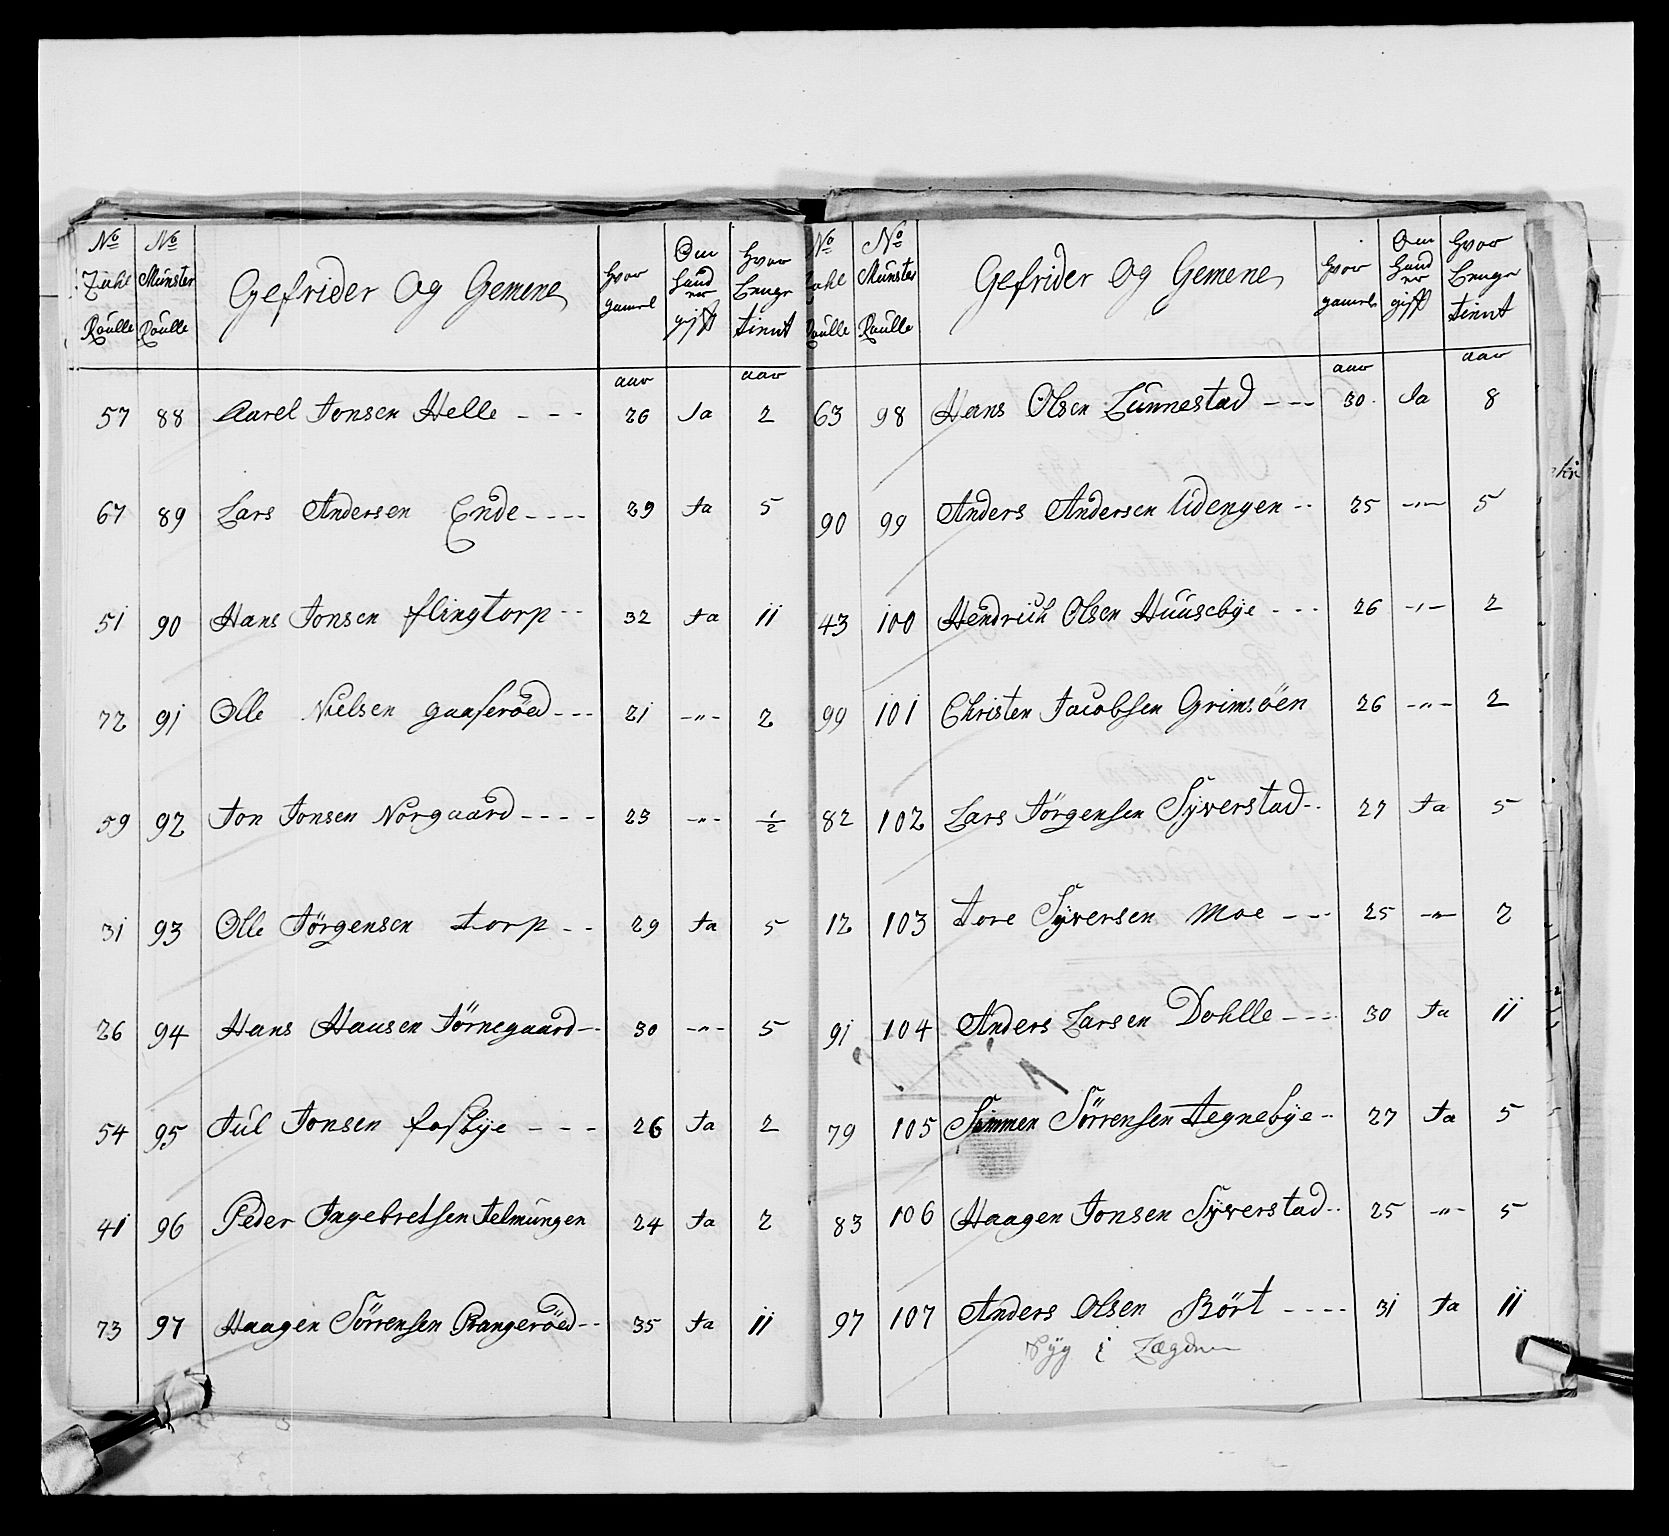 No Zahl Roulle | No Munster Roulle | Gefrider Og Gemene | Hvor gamel | Om Hand er gift | Hvor Lenge tient
aar | aar
57 88 Karel Jonsen Helle - - - 26 Ja 2
67 89 Lars Andersen Ende - - - - 29 Ja 5
51 90 Hans Jonsen flingtorp - - 32 Ja 11
72 91 Olle Nielsen gaaseröed - - - 21 -"- 2
59 92 Jon Jonsen Norgaard - - - - 23 -"- 1/2
31 93 Olle Jörgensen torp - - 29 Ja 5
26 94 Hans Hansen Törnegaard - - 30 -"- 5
54 95 Jul Jonsen fosbÿe - - - 26 Ja 2
41 96 Peder Ingebretsen Telmungen 24 Ja 2
73 97 Haagen Sörrensen Prangeröed - - 35 Ja 11
No Zahl Roulle | No Munster Roulle | Gefrider og Gemene | Hvor gamel | Om Hand er gift | Hvor Lenge tient
aar | aar
63 98 Hans Olsen Lunnestad - - - 30 Ja 8
90 99 Anders Andersen Udengen - - 25 -"- 5
43 100 Hendrich Olsen Huusebÿe - - - 26 -"- 2
99 101 Christen Jacobsen Grimsöen 26 -"- 2
82 102 Lars Jörgensen Sÿverstad - - 27 Ja 5
12 103 Tore Sÿversen Moe - - - 25 -"- 2
91 104 Anders Larsen Dohlle - - - 30 Ja 11
79 105 Simmen Sörrensen Tegnebÿe - - 27 Ja 5
83 106 Haagen Jonsen Sÿverstad - - 25 -"- 5
97 107 Anders Olsen Bört - - - - 31 Ja 11
Sÿg i Lægden